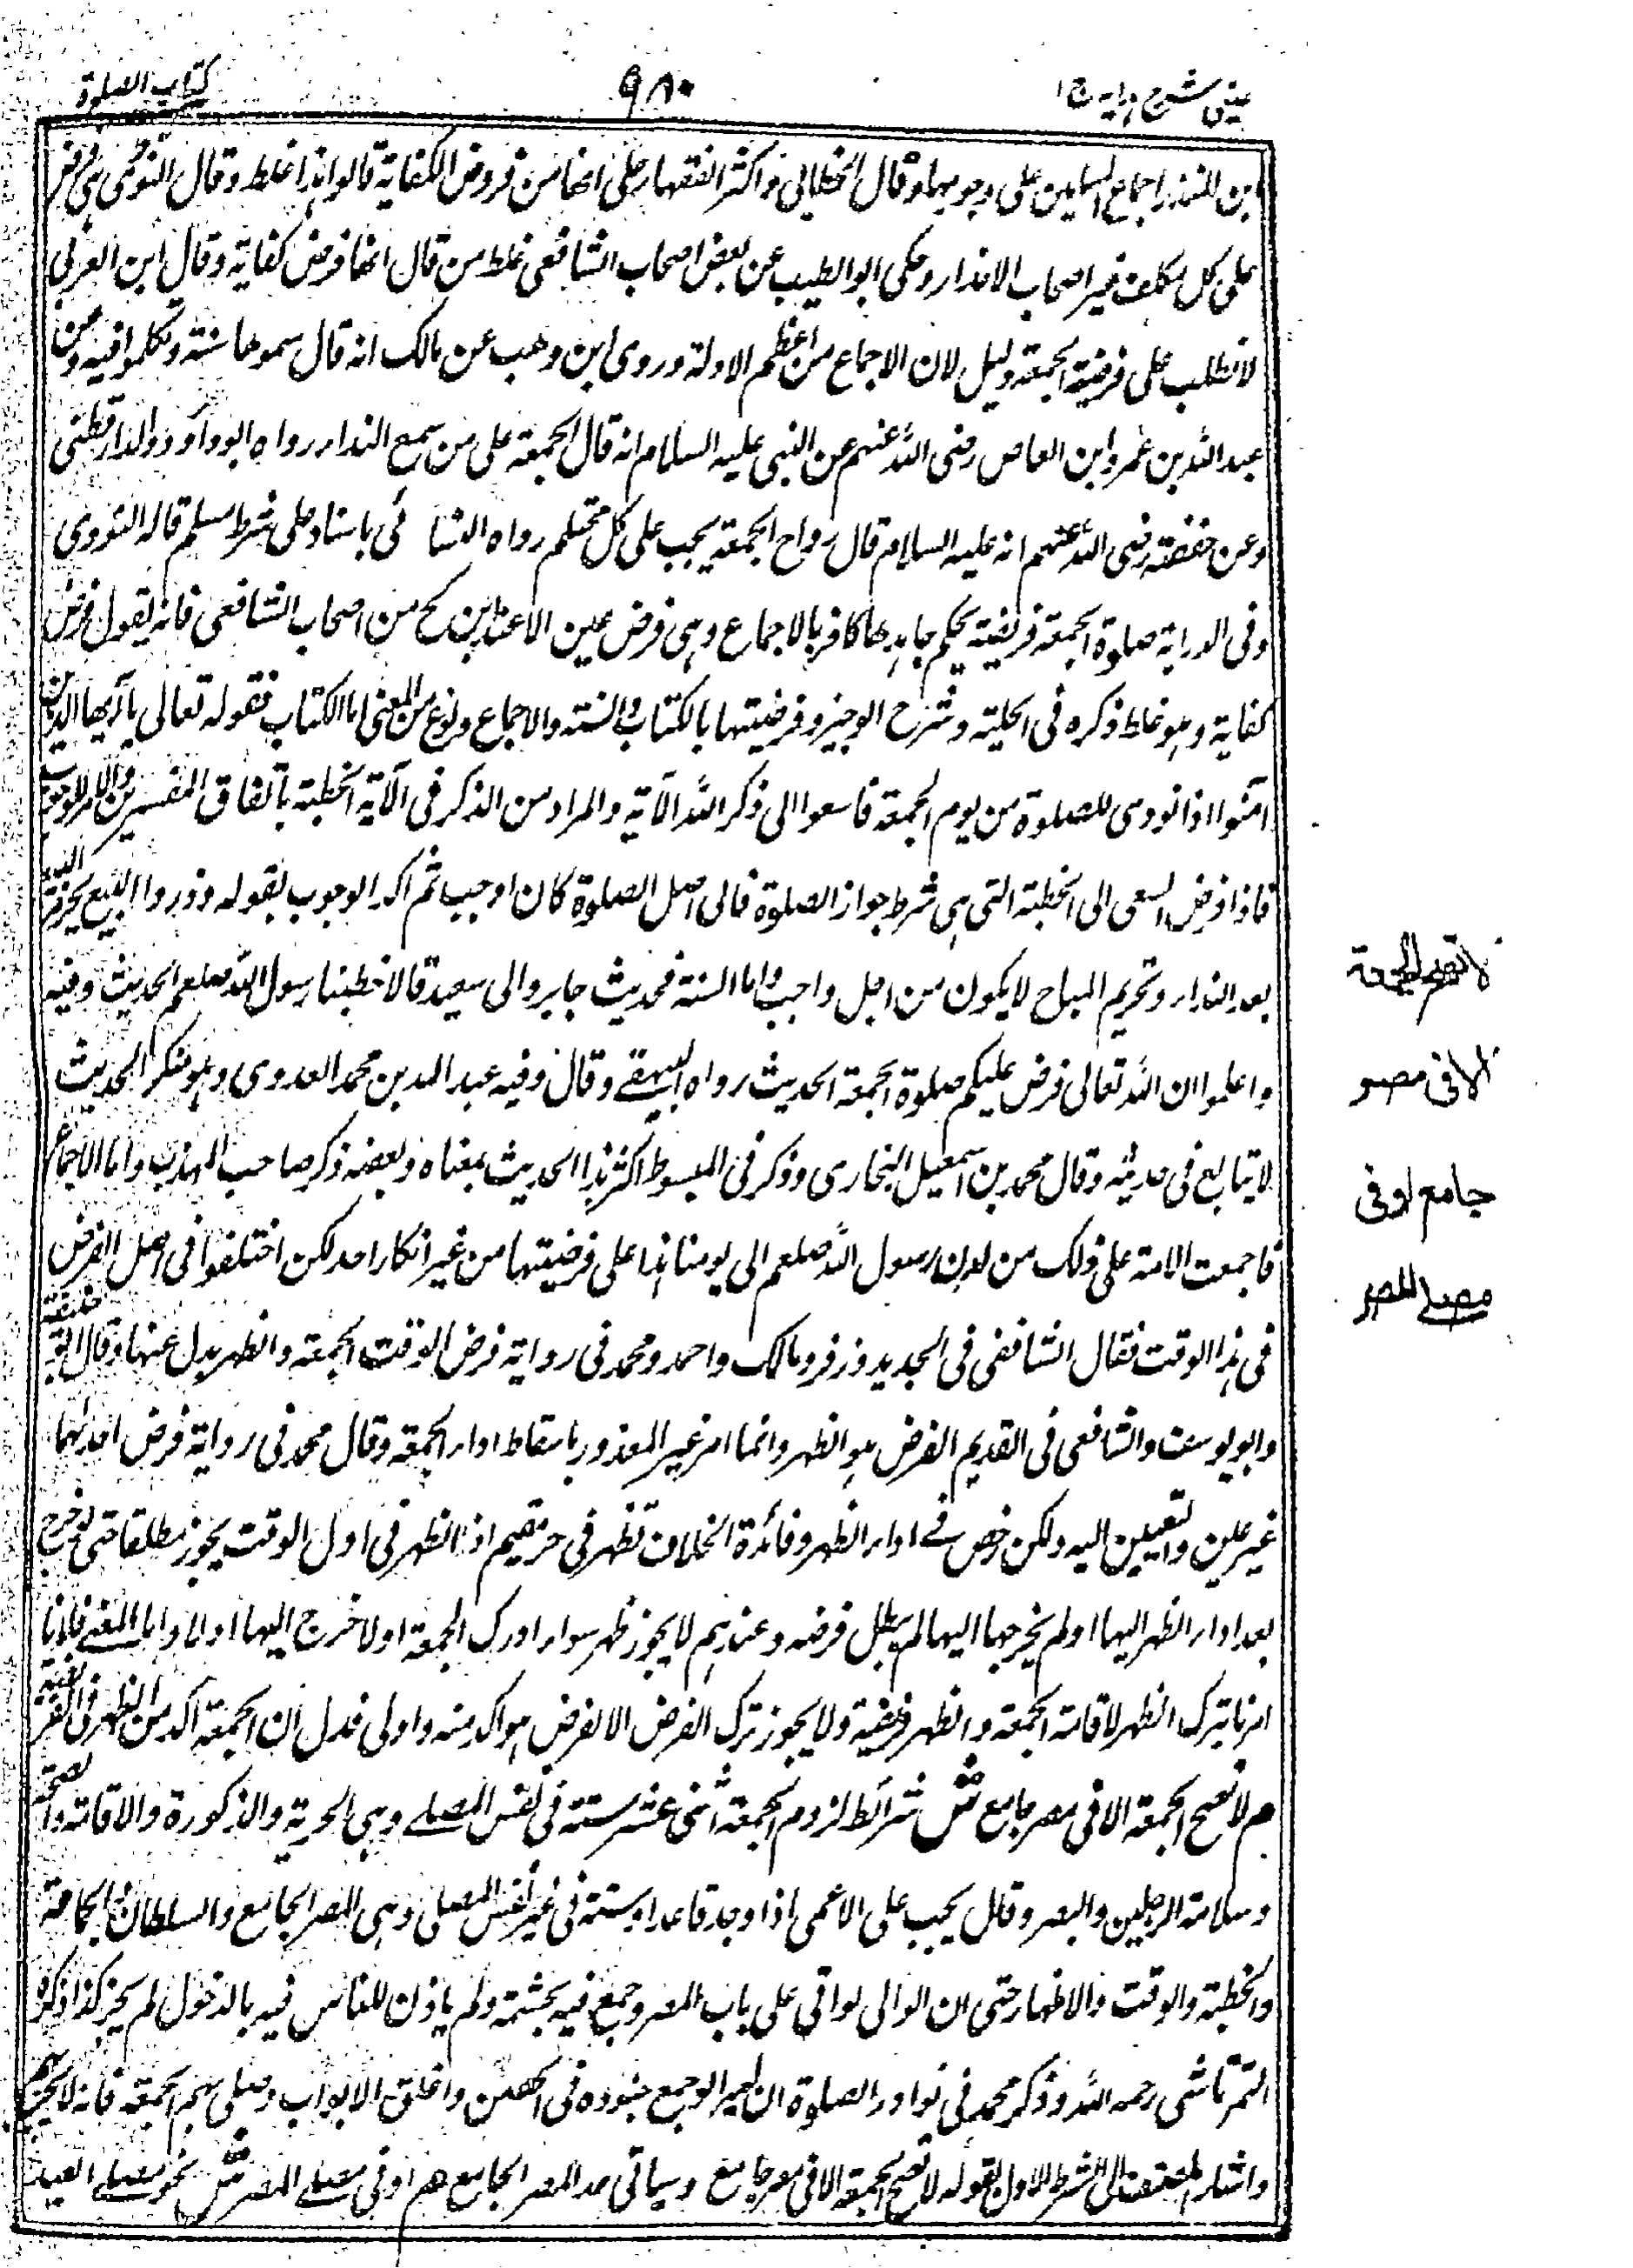 عینی شرح ہدایہ ج ۱
۹۸۰
کتاب الصلوة
ابن المنذر اجماع المسلمين على وجوبها وقال الخطابي ذاكثر الفقهاء على انها من فروض الكفاية قالوا هذا غلط وقال النووي هي فرض
على كل مكلف غير اصحاب الاعذار وحكى ابو الطيب عن بعض اصحاب الشافعي غلط من قال انها فرض كفاية وقال ابن العربي
لا نطلب على فرضية الجمعة دليل لان الاجماع من اعظم الادلة وروى ابن وهب عن مالك انه قال سموها سنة وتكلموا فيه وعن
عبد الله بن عمرو ابن العاص رضى الله عنهم عن النبي عليه السلام انه قال الجمعة على من سمع النداء رواه ابو داود والدارقطني
وعن حفصة رضى الله عنهم انه عليه السلام قال رواح الجمعة يجب على كل محتلم رواه النسائي باسناد على شرط مسلم قاله النووي
وفى الدراية صلوة الجمعة فريضة يحكم جاحدها كافر بالاجماع وهي فرض عين الا عند ابن كج من اصحاب الشافعي فانه يقول فرض
كفاية وهو غلط ذكره في الحلية وشرح الوجيز وفرضيتها بالكتاب والسنة والاجماع ونوع من المعنى اما الكتاب فقوله تعالى يا ايها الذين
آمنوا اذا نودى للصلوة من يوم الجمعة فاسعوا الى ذكر الله الآية والمراد من الذكر في الآية الخطبة باتفاق المفسرين والامر للوجوب
فاذا فرض السعي الى الخطبة التي هي شرط جواز الصلوة فالى اصل الصلوة كان اوجب ثم اكد الوجوب بقوله وذروا البيع بحرمة البيع
بعد النداء وتحريم المباح لا يكون من اجل واجب واما السنة فحديث جابر وابي سعيد قالا خطبنا رسول الله صلعم الحديث وفيه
واعلموا ان الله تعالى فرض عليكم صلوة الجمعة الحديث رواه البيهقے وقال وفيه عبد الله بن محمد العدوى وهو منكر الحديث
لا يتابع في حديثه وقال محمد بن اسمعيل البخاري وذكر في المبسوط اكثر هذا الحديث بمعناه وبعضه ذكر صاحب المهذب واما الاجماع
فاجمعت الامة على ذلك من لدن رسول الله صلعم الى يومنا هذا على فرضيتها من غير انكار احد لكن اختلفوا في اصل الفرض
في هذا الوقت فقال الشافعي في الجديد وزفر ومالك واحمد ومحمد في رواية فرض الوقت الجمعة والظهر بدل عنها وقال ابو حنيفة
وابو يوسف والشافعي في القديم الفرض هو الظهر وانما امر غير المعذور باسقاط اداء الجمعة وقال محمد في رواية فرض احدهما
غير عين والتعيين اليه ولكن رخص فے اداء الظهر وفائدة الخلاف تظهر في حر مقيم اذا الظهر في اول الوقت يجوز مطلقا حتى لو خرج
بعد اداء الظهر اليها او لم يخرجها اليها لم يبطل فرضه وعندهم لا يجوز ظهر سواء ادرك الجمعة اولا خرج اليها اولا واما المعنے فلانا
امرنا بترك الظهر لاقامة الجمعة والظهر فريضة ولا يجوز ترك الفرض الا لفرض هو اكد منه واولى فدل ان الجمعة آكد من الظهر في الفرضية
م لا تصح الجمعة الا في مصر جامع ش شرائط لزوم الجمعة اثنى عشر ستة في نفس المصلے وهى الحرية والذكورة والاقامة والصحة
وسلامة الرجلين والبصر وقالا يجب على الاعمى اذا وجد قاعدا وستة في غير نفس المصلى وهى المصر الجامع والسلطان والجماعة
والخطبة والوقت والاظهار حتى ان الوالي لو اتى على باب المصر وجمع فيه بحشمه ولم ياذن للناس فيه بالدخول لم يجز كذا ذكره
التمرتاشى رحمه الله وذكر محمد في نوادر الصلوة ان امير الو جمع جنوده في الحصن واغلق الابواب وصلى بهم الجمعة فانه لا يجزيهم
واشار المصنف الى الشرط الاول بقوله لا تصح الجمعة الا في مصر جامع وسياتى حد المصر الجامع م او في مصلے المصر ش نحو مصلے العيد
لا تصح الجمعة
الا فى مصر
جامع اوفى
مصلے المصر